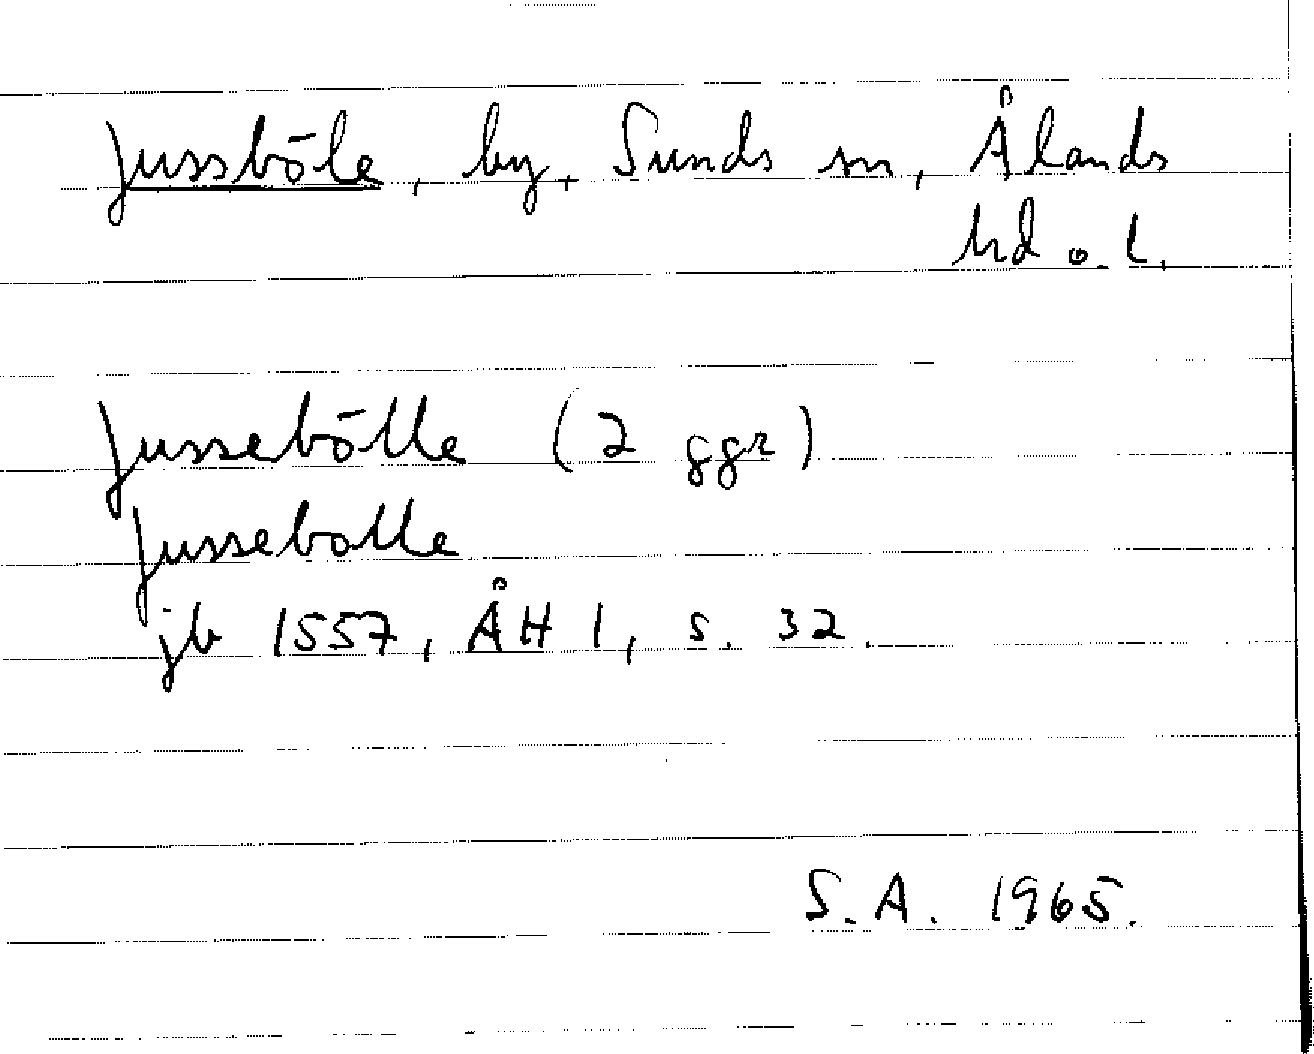 Jussböle, by, Sunds sn, Ålands
hd o. l.
Jussebölle (2 ggr)
Jussebolle
jb 1557, ÅH 1, s. 32.
S.A. 1965.